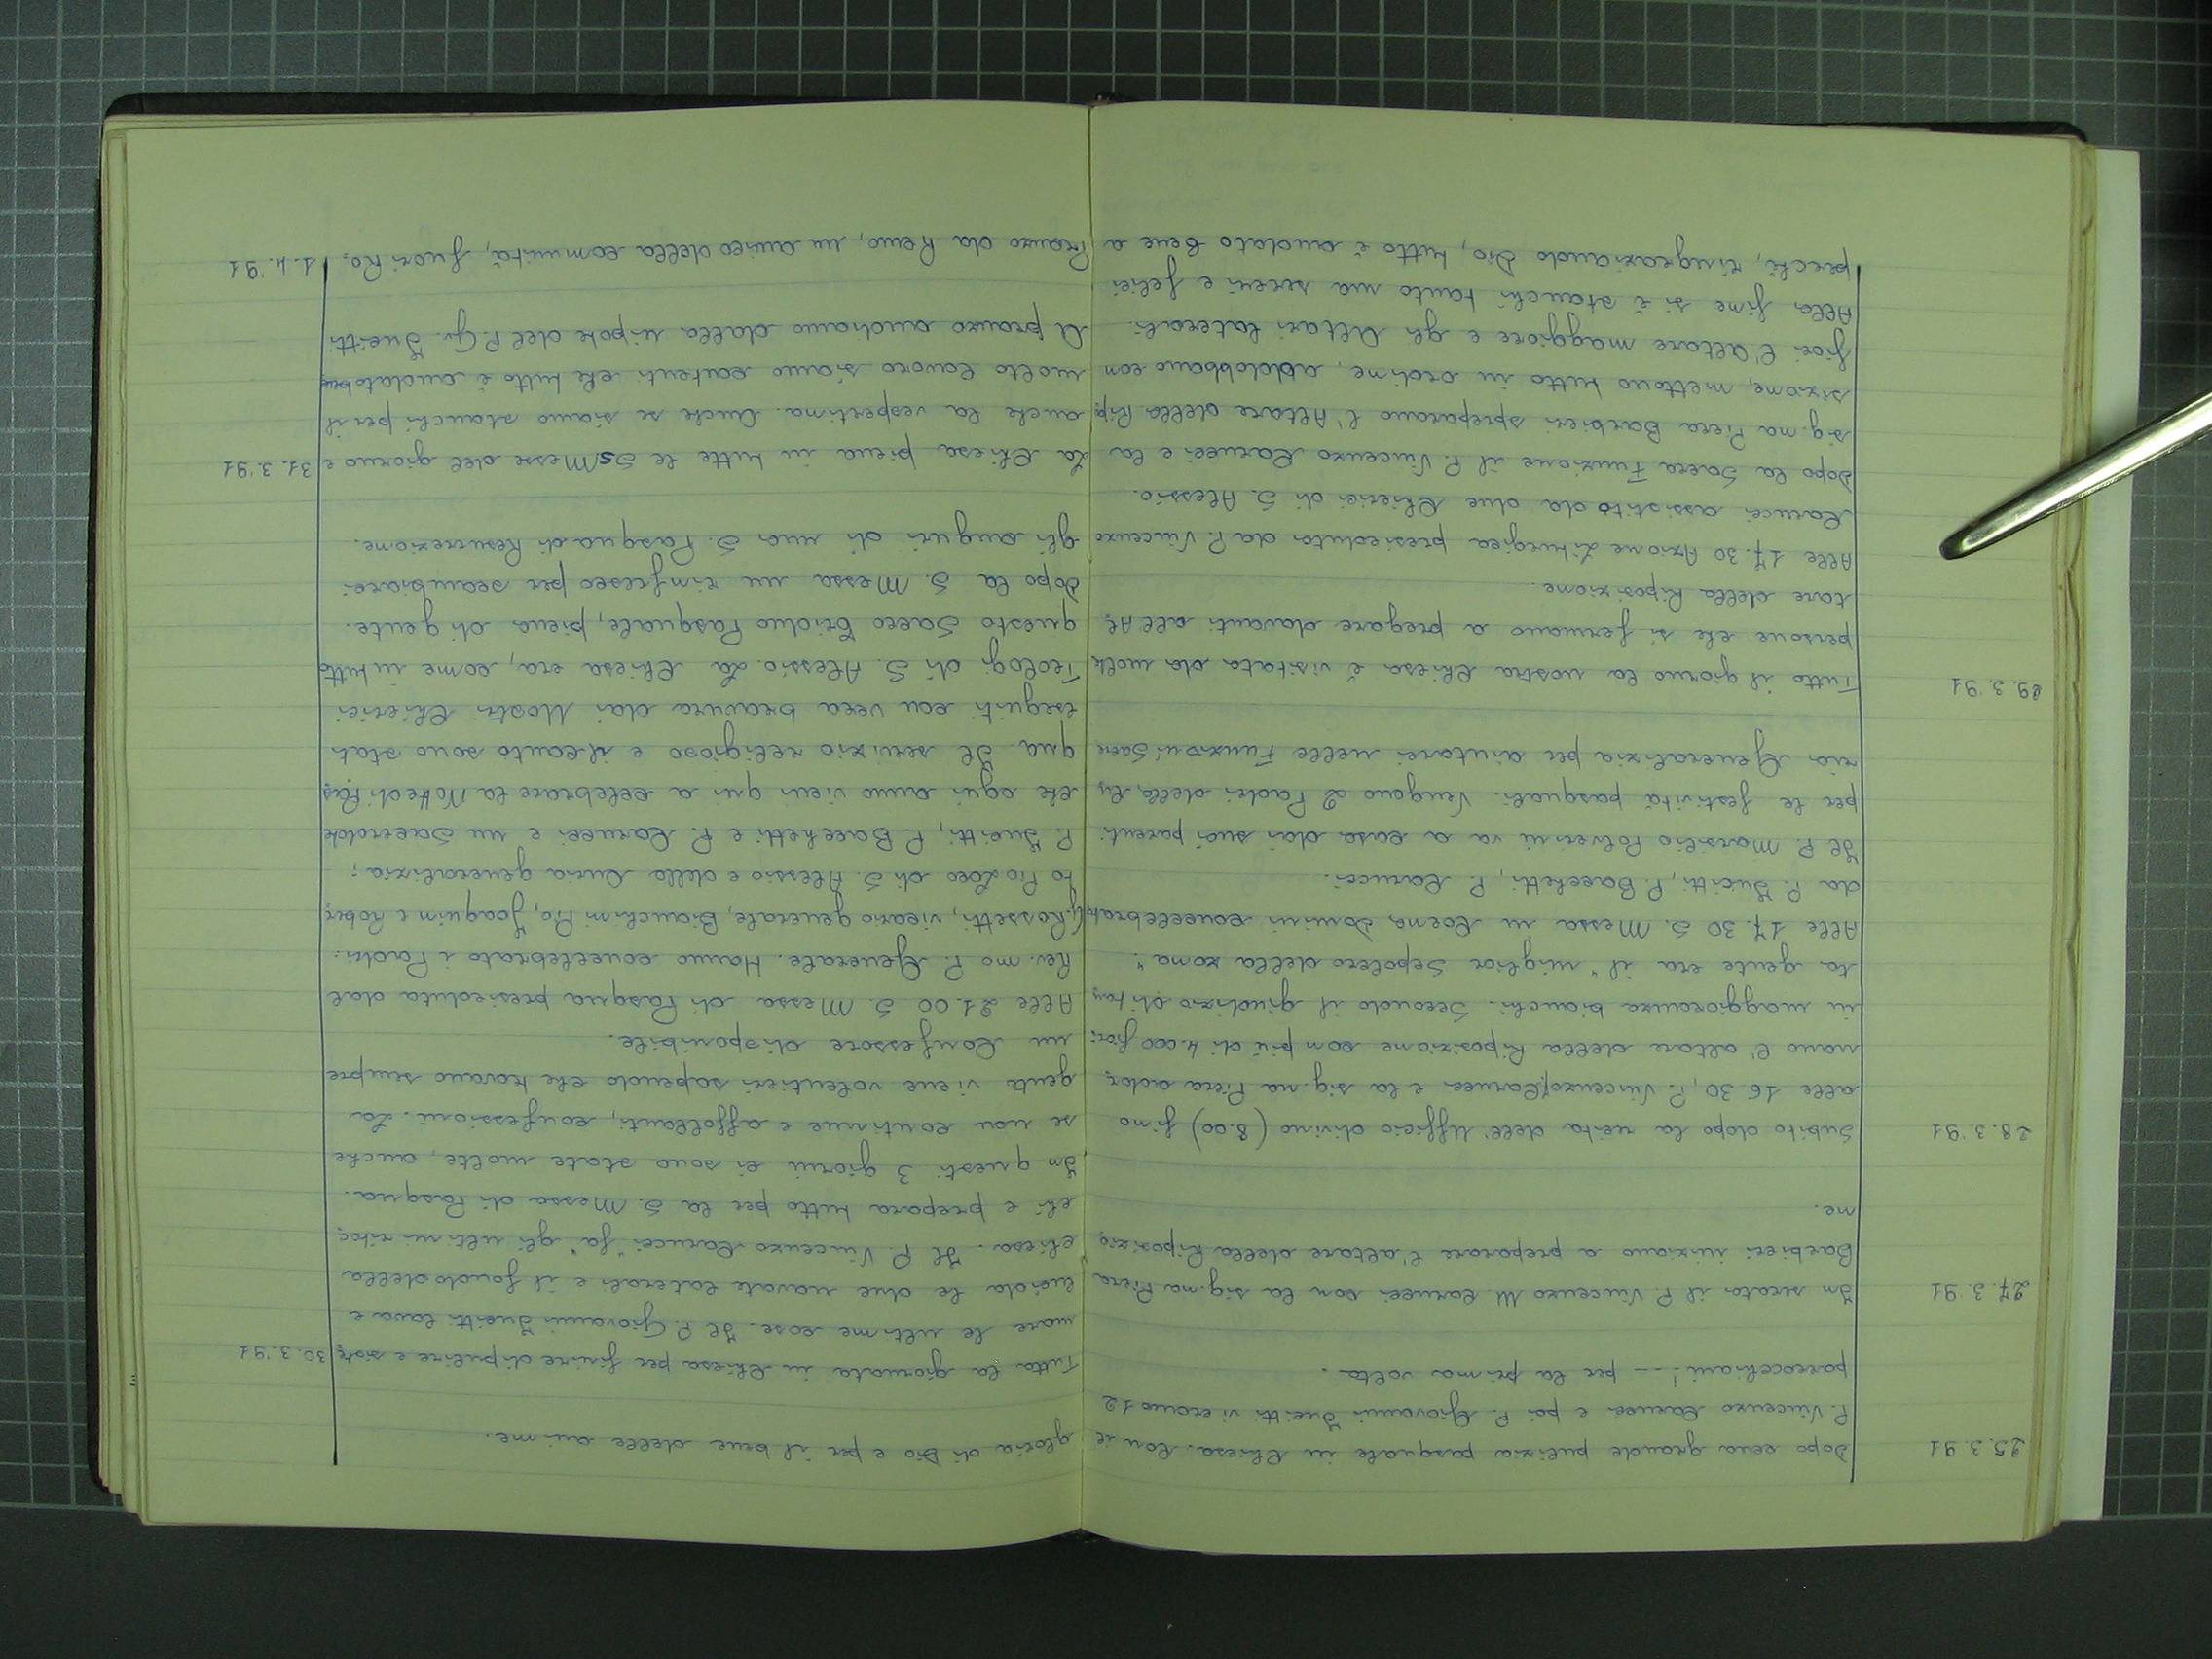 25.3.91 Dopo cena grande pulizia pasquale in Chiesa. Con il
P. Vincenzo Carucci e poi P. Giovanni Jucitti vi erano 12
parrocchiani!-- per la prima volta.
27.3.91 In serata il P. Vincenzo M. Carucci con la sig.na Piera
Barbieri iniziano a preparare l'altare della Riposizio
me.
28.3.91 Subito dopo la recita dell'Ufficio divino (8.00) fino
alle 16.30, P. Vincenzo Carucci e la sig.na Piera ador
nano l'altare della Riposizione con più di 4.000 fiori
in maggioranza bianchi. Secondo il giudizio di tan
ta gente era il "miglior Sepolcro della zona".
Alle 17.30 S. Messa in Coena Domini concelebrata
da P. Jucitti, P. Bacchetti, P. Carucci.
Il P. Marsilio Polverini va a casa dai suoi parenti
per le festività pasquali. Vengono 2 Padri della Cu
ria Generalizia per aiutarci nelle Funzioni Sacre
29.3.91 Tutto il giorno la nostra Chiesa è visitata da molte
persone che si fermano a pregare davanti all'Al
tare della Riposizione.
Alle 17.30 Azione Liturgica presieduta da P. Vincenzo
Carucci assistito da due Chierici di S. Alessio.
Dopo la Sacra Funzione il P. Vincenzo Carucci e la
sig.na Piera Barbieri spreparano l'Altare della Rip
sizione, mettono tutto in ordine, addobbano con
fiori l'altare maggiore e gli Altari laterali.
Alla fine si è stanchi tanto ma sereni e felici
perchè, ringraziando Dio, tutto è andato bene a
gloria di Dio e per il bene delle anime.
30.3.91 Tutta la giornata in Chiesa per finire di pulire e siste
mare le ultime cose. Il P. Giovanni Jucitti lava e
lucida le due navate laterali e il fondo della
chiesa. Il P. Vincenzo Carucci "fa" gli ultimi ritoc
chi e prepara tutto per la S. Messa di Pasqua.
In questi 3 giorni ci sono state molte, anche
se non continue e affollanti, confessioni. La
gente viene volentieri sapendo che trovano sempre
un Confessore disponibile.
Alle 21.00 S. Messa di Pasqua presieduta dal
Rev.mo P. Generale. Hanno concelebrato i Padri:
G. Rossetti, vicario generale, Bianchini Pio, Joaquin e Rober
to Pio Loco di S. Alessio e della Curia generalizia;
P. Jucitti, P. Bacchetti e P. Carucci e un Sacerdote
che ogni anno vien qui a celebrare la Notte di Pas
qua. Il servizio religioso e il canto sono stati
eseguiti con vera bravura dai Nostri Chierici
Teologi di S. Alessio. La Chiesa era, come in tutto
questo Sacro Triduo Pasquale, piena di gente.
Dopo la S. Messa un rinfresco per scambiarci
gli auguri di una S. Pasqua di Resurrezione.
31.3.91 La Chiesa piena in tutte le SS Messe del giorno e
anche la vespertina. Anche se siamo stanchi per il
molto lavoro siamo contenti che tutto è andato bene
A pranzo andiamo dalla nipote del P. Gv. Jucitti
1.4.91 Pranzo da Remo, un amico della comunità, fuori Ro.